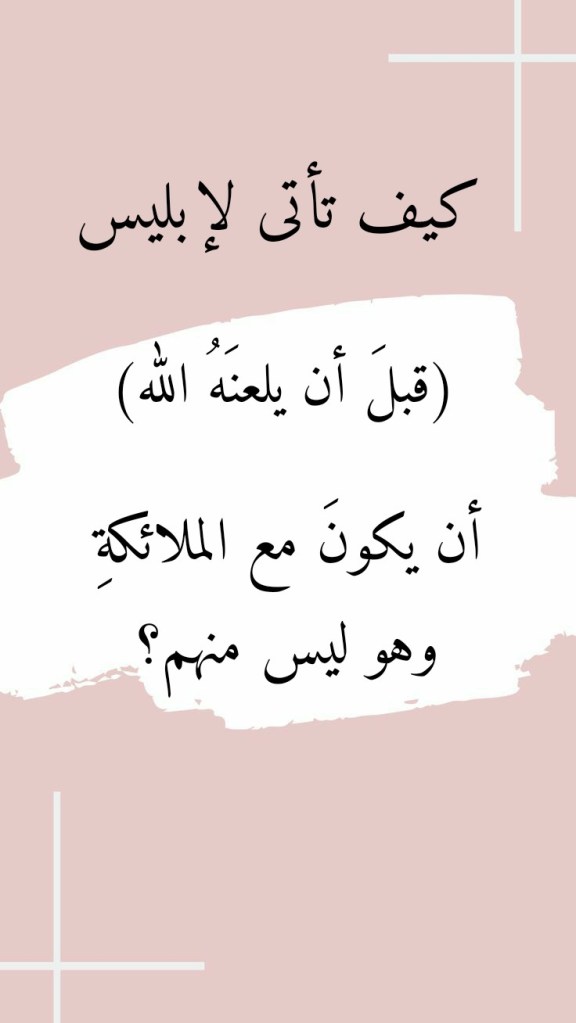 كيف تأتى لإبليس
(قبلَ أن يلعنَهُ الله)
أن يكونَ مع الملائكةِ
وهو ليس منهم؟